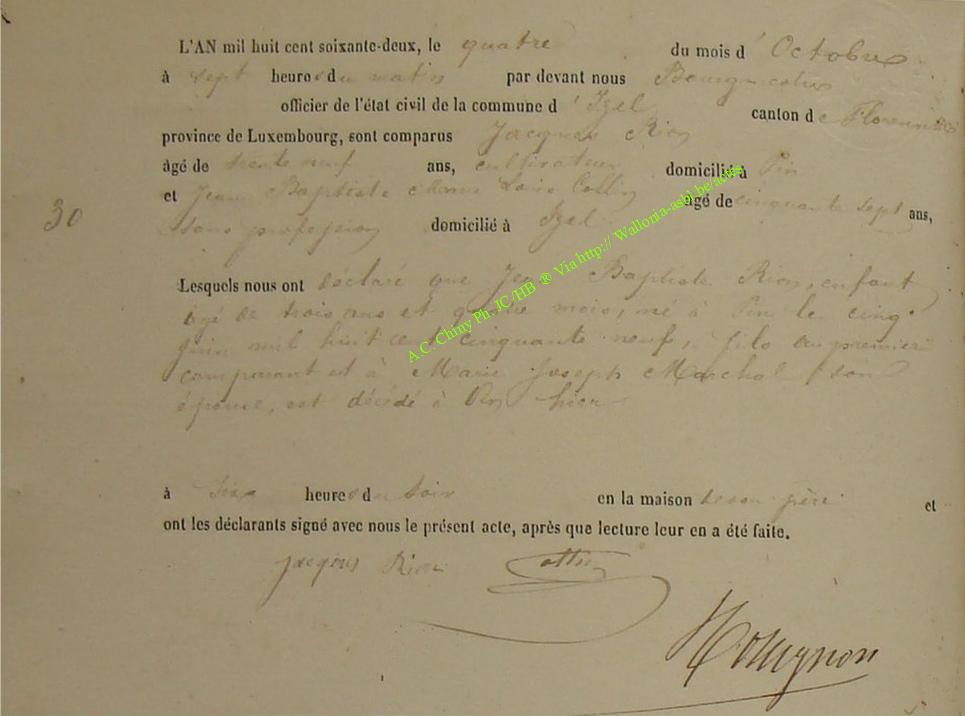 L'AN mil huit cent soixante-deux, le quatre du mois d' Octobre
à sept heures du matin par devant nous Bourgmestre
officier de l'état civil de la commune d' Izel canton de Florenville
province de Luxembourg, sont comparus Jacques Rion
âgé de trente neuf ans, cultivateur domicilié à Pin
et Jean Baptiste Louis Collin âgé de cinquante sept ans,
30
sans profession domicilié à Izel
Lesquels nous ont déclaré que Jean Baptiste Rion, enfant
agé de trois ans et quatre mois, né à Pin le cinq
juin mil huit cent cinquante neuf, fils au premier
comparant et à Marie Joseph Marchal son
épouse, est décédé à Pin hier
à heures du soir en la maison de son père et
ont les déclarants signé avec nous le présent acte, après que lecture leur en a été faite.
Jacques Rion Collin
A.C. Chiny Ph. JC/HB ® Via http:// Wallonia-asbl.be/actes